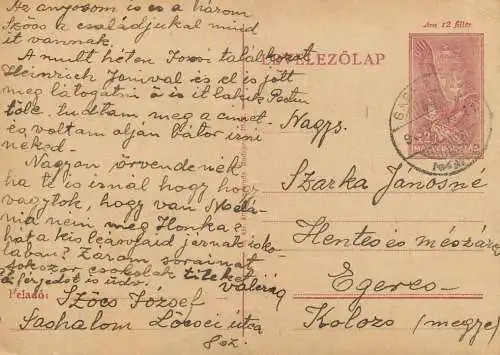 Az anyósom is es a három
Szőcs a családjukal mind
itt vannak.
A mult héten Józsi találkozott
Heinrich Jánival és el is jött
meg látogatni ő is it lakik Pestu
tőle tudtam meg a címet
es voltam oljan bátor irni
neked.
Nagyon örvendenék
ha te is irnál hogy hogy
vagytok, hogy van
nia néni meg Ilonka e
hát a kis leányaid járnak isko
lában? Zárom soraimat
sokszor csokolak titeket
férjedet is üdv. Valéria
Feladó: Szőcs József
Sashalom Lőcsei utca
sz.
Ára 12 fillér
LEVELEZŐLAP
Nagys.
Szarka Jánosné
Hentes és mészáros
Egeres
Kolozs (megye)